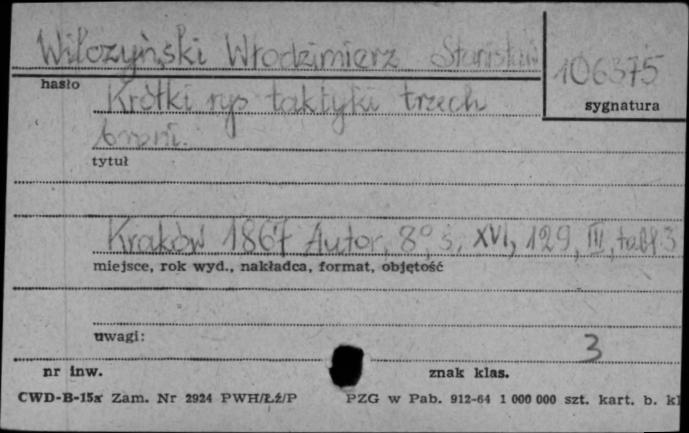 Wilczyński Włodzimierz Stanisław
106375
hasło
sygnatura
Krótki rys taktyki trzech
broni.
tytuł
Kraków 1867 Autor, 8°, s. XVI, 129, III, tabl. 3
miejsce, rok wyd., nakładca, format, objętość
uwagi:
3
nr inw.
znak klas.
CWD-B-15a Zam. Nr 2924 PWH/Łż/P
PZG w Pab. 912-64 1 000 000 szt. kart. b. kl